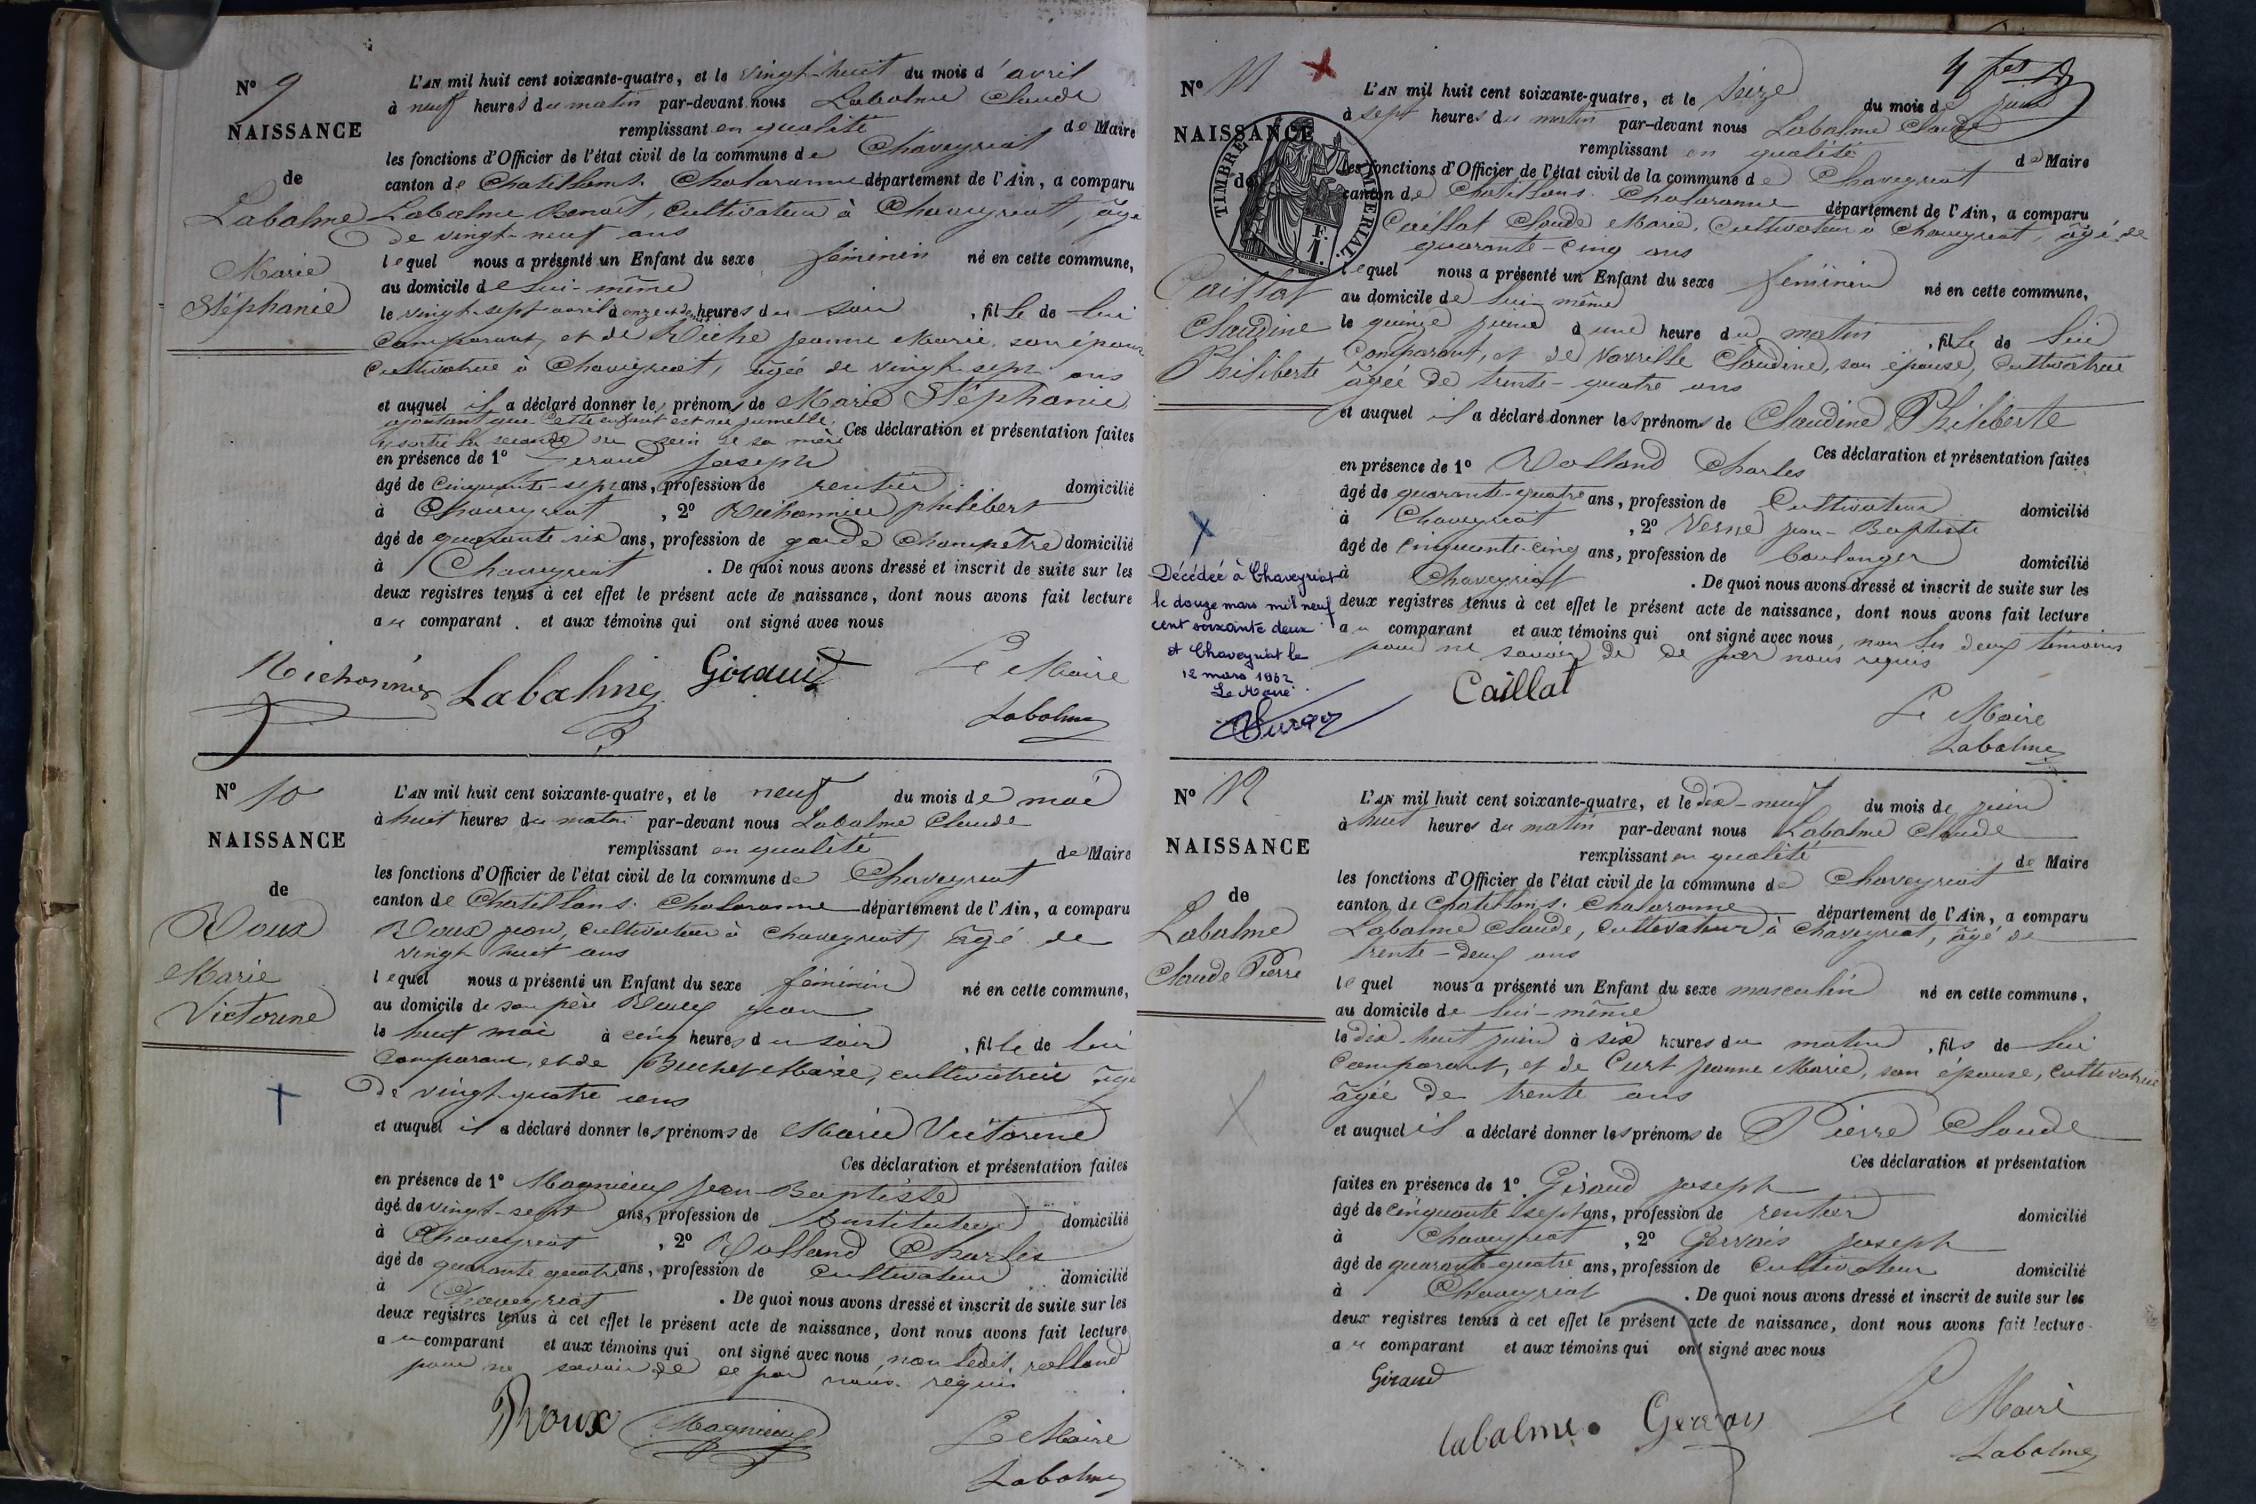 N° 9
NAISSANCE
de
Labalme
Marie
Stéphanie
L'AN mil huit cent soixante-quatre, et le vingt-huit du mois d'avril
à neuf heures du matin par-devant nous Labalme Claude
remplissant en qualité de Maire
les fonctions d'Officier de l'état civil de la commune de Chaveyriat
canton de Chatillon s. Chalaronne département de l'Ain, a comparu
Labalme Benoît, Cultivateur à Chaveyriat, âgé
de vingt-neuf ans
lequel nous a présenté un Enfant du sexe féminin né en cette commune,
au domicile de lui-même
le vingt-sept avril à onze heures du soir, fille de lui
Comparant et de Jeanne Marie, son épouse
Cultivatrice à Chaveyriat, âgée de vingt-sept ans
et auquel il a déclaré donner les prénoms de Marie Stéphanie
ajoutant que cette enfant est née jumelle
et sortie la seconde du sein de sa mère Ces déclaration et présentation faites
en présence de 1° Giraud Joseph
âgé de Cinquante-sept ans, profession de rentier domicilié
à Chaveyriat, 2° Richonnier philibert
âgé de quarante six ans, profession de garde Champêtre domicilié
à Chaveyriat. De quoi nous avons dressé et inscrit de suite sur les
deux registres tenus à cet effet le présent acte de naissance, dont nous avons fait lecture
au comparant. et aux témoins qui ont signé avec nous
Richonnier Labalme Giraud Le Maire
Labalme
N° 10
NAISSANCE
de
Roux
Marie
Victorine
L'AN mil huit cent soixante-quatre, et le neuf du mois de mai
à huit heures du matin par-devant nous Labalme Claude
remplissant en qualité de Maire
les fonctions d'Officier de l'état civil de la commune de Chaveyriat
canton de Chatillon s. Chalaronne département de l'Ain, a comparu
Roux jean, cultivateur à Chaveyriat, âgé de
vingt huit ans
lequel nous a présenté un Enfant du sexe féminin né en cette commune,
au domicile de son père Roux jean
le huit mai à cinq heures du soir, fille de lui
Comparant, et de Buchet Marie, cultivatrice âgée
de vingt-quatre ans
et auquel il a déclaré donner les prénoms de Marie Victorine
Ces déclaration et présentation faites
en présence de 1° Magnieux Jean Baptiste
âgé de vingt-sept ans, profession de Instituteur domicilié
à Chaveyriat, 2° Rolland Charles
âgé de quarante quatre ans, profession de Cultivateur domicilié
à Chaveyriat. De quoi nous avons dressé et inscrit de suite sur les
deux registres tenus à cet effet le présent acte de naissance, dont nous avons fait lecture
au comparant et aux témoins qui ont signé avec nous, non ledit rolland
pour ne savoir de ce par nous requis
Roux Magnieux Le Maire
Labalme
4 fos
N° 11
NAISSANCE
de
TIMBRE IMPERIAL
F. 1.
Caillat
Claudine
Philiberte
Décédée à Chaveyriat
le douze mars mil neuf
cent soixante deux
et Chaveyriat le
12 mars 1962
Le Maire
L'AN mil huit cent soixante-quatre, et le seize du mois de juin
à sept heures du matin par-devant nous Labalme Claude
remplissant en qualité de Maire
les fonctions d'Officier de l'état civil de la commune de Chaveyriat
canton de Chatillon s. Chalaronne département de l'Ain, a comparu
Caillat Claude Marie, Cultivateur à Chaveyriat, âgé de
quarante-cinq ans
lequel nous a présenté un Enfant du sexe féminin né en cette commune,
au domicile de lui même
le quinze juin à une heure du matin, fille de lui
Comparant, et de Claudine, son épouse, Cultivatrice
âgée de trente-quatre ans
et auquel il a déclaré donner les prénoms de Claudine Philiberte
Ces déclaration et présentation faites
en présence de 1° Rolland Charles
âgé de quarante-quatre ans, profession de Cultivateur domicilié
à Chaveyriat, 2° Verne jean-Baptiste
âgé de cinquante-cinq ans, profession de boulanger domicilié
à Chaveyriat. De quoi nous avons dressé et inscrit de suite sur les
deux registres tenus à cet effet le présent acte de naissance, dont nous avons fait lecture
au comparant et aux témoins qui ont signé avec nous, non les deux témoins
pour ne savoir de ce par nous requis
Caillat Le Maire
Labalme
N° 12
NAISSANCE
de
Labalme
Claude Pierre
L'AN mil huit cent soixante-quatre, et le dix-neuf du mois de juin
à huit heures du matin par-devant nous Labalme Claude
remplissant en qualité de Maire
les fonctions d'Officier de l'état civil de la commune de Chaveyriat
canton de Chatillon s. Chalaronne département de l'Ain, a comparu
Labalme Claude, Cultivateur à Chaveyriat, âgé de
trente-deux ans
lequel nous a présenté un Enfant du sexe masculin né en cette commune,
au domicile de lui-même
le dix-huit juin à six heures du matin, fils de lui
Comparant, et de Curt Jeanne Marie, son épouse, Cultivatrice
âgée de trente ans
et auquel il a déclaré donner les prénoms de Pierre Claude
Ces déclaration et présentation
faites en présence de 1°. Giraud joseph
âgé de cinquante sept ans, profession de rentier domicilié
à Chaveyriat, 2° Gervais joseph
âgé de quarante-quatre ans, profession de Cultivateur domicilié
à Chaveyriat. De quoi nous avons dressé et inscrit de suite sur les
deux registres tenus à cet effet le présent acte de naissance, dont nous avons fait lecture
au comparant et aux témoins qui ont signé avec nous
Giraud
labalme Gervais Le Maire
Labalme